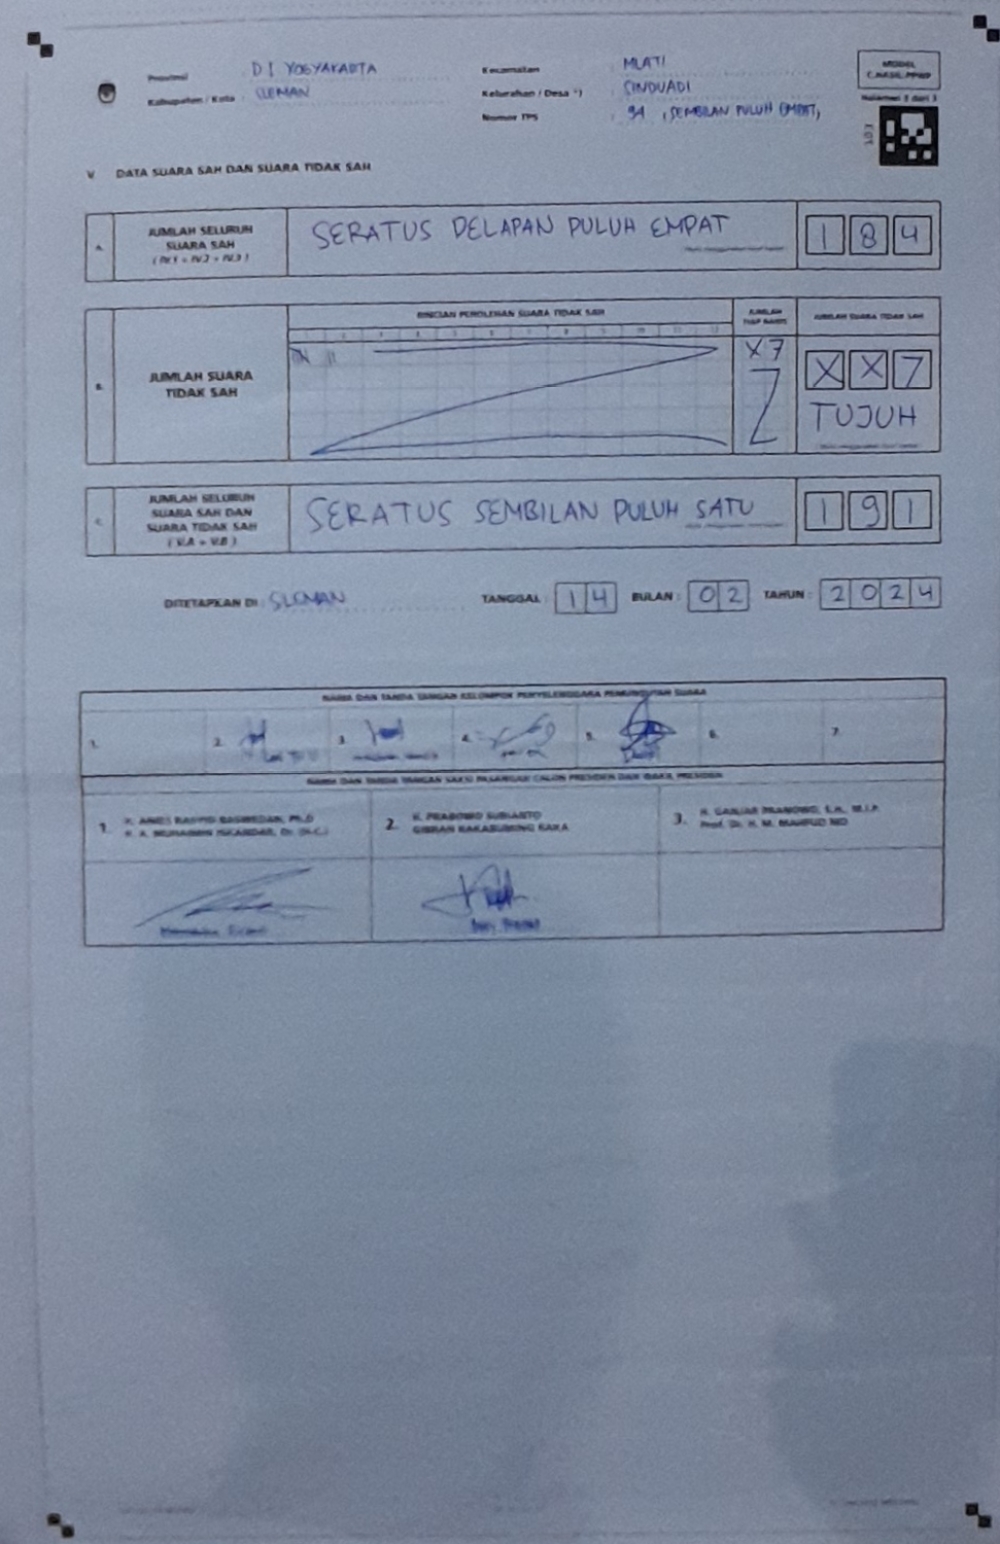 Provinsi : D I YOGYAKARTA
Kabupaten / Kota : SLEMAN
Kecamatan : MLATI
Kelurahan / Desa *) : SINDUADI
Nomor TPS : 94 (SEMBILAN PULUH EMPAT)
MODEL
C.HASIL-PPWP
Halaman 3 dari 3
V. DATA SUARA SAH DAN SUARA TIDAK SAH
A. JUMLAH SELURUH
SUARA SAH
( IV.1 + IV.2 + IV.3 )
SERATUS DELAPAN PULUH EMPAT
1 8 4
B. JUMLAH SUARA
TIDAK SAH
RINCIAN PEROLEHAN SUARA TIDAK SAH
1 2 3 4 5 6 7 8 9 10 11 12
JUMLAH
TIAP BARIS
X 7
JUMLAH SUARA TIDAK SAH
X X 7
TUJUH
C. JUMLAH SELURUH
SUARA SAH DAN
SUARA TIDAK SAH
( V.A + V.B )
SERATUS SEMBILAN PULUH SATU
1 9 1
DITETAPKAN DI : SLEMAN TANGGAL : 1 4 BULAN : 0 2 TAHUN : 2 0 2 4
NAMA DAN TANDA TANGAN KELOMPOK PENYELENGGARA PEMUNGUTAN SUARA
1. 2. 3. 4. 5. 6. 7.
NAMA DAN TANDA TANGAN SAKSI PASANGAN CALON PRESIDEN DAN WAKIL PRESIDEN
1. H. ANIES RASYID BASWEDAN, Ph.D
H. A. MUHAIMIN ISKANDAR, Dr. (H.C.)
2. H. PRABOWO SUBIANTO
GIBRAN RAKABUMING RAKA
3. H. GANJAR PRANOWO, S.H., M.I.P.
Prof. Dr. H. M. MAHFUD MD